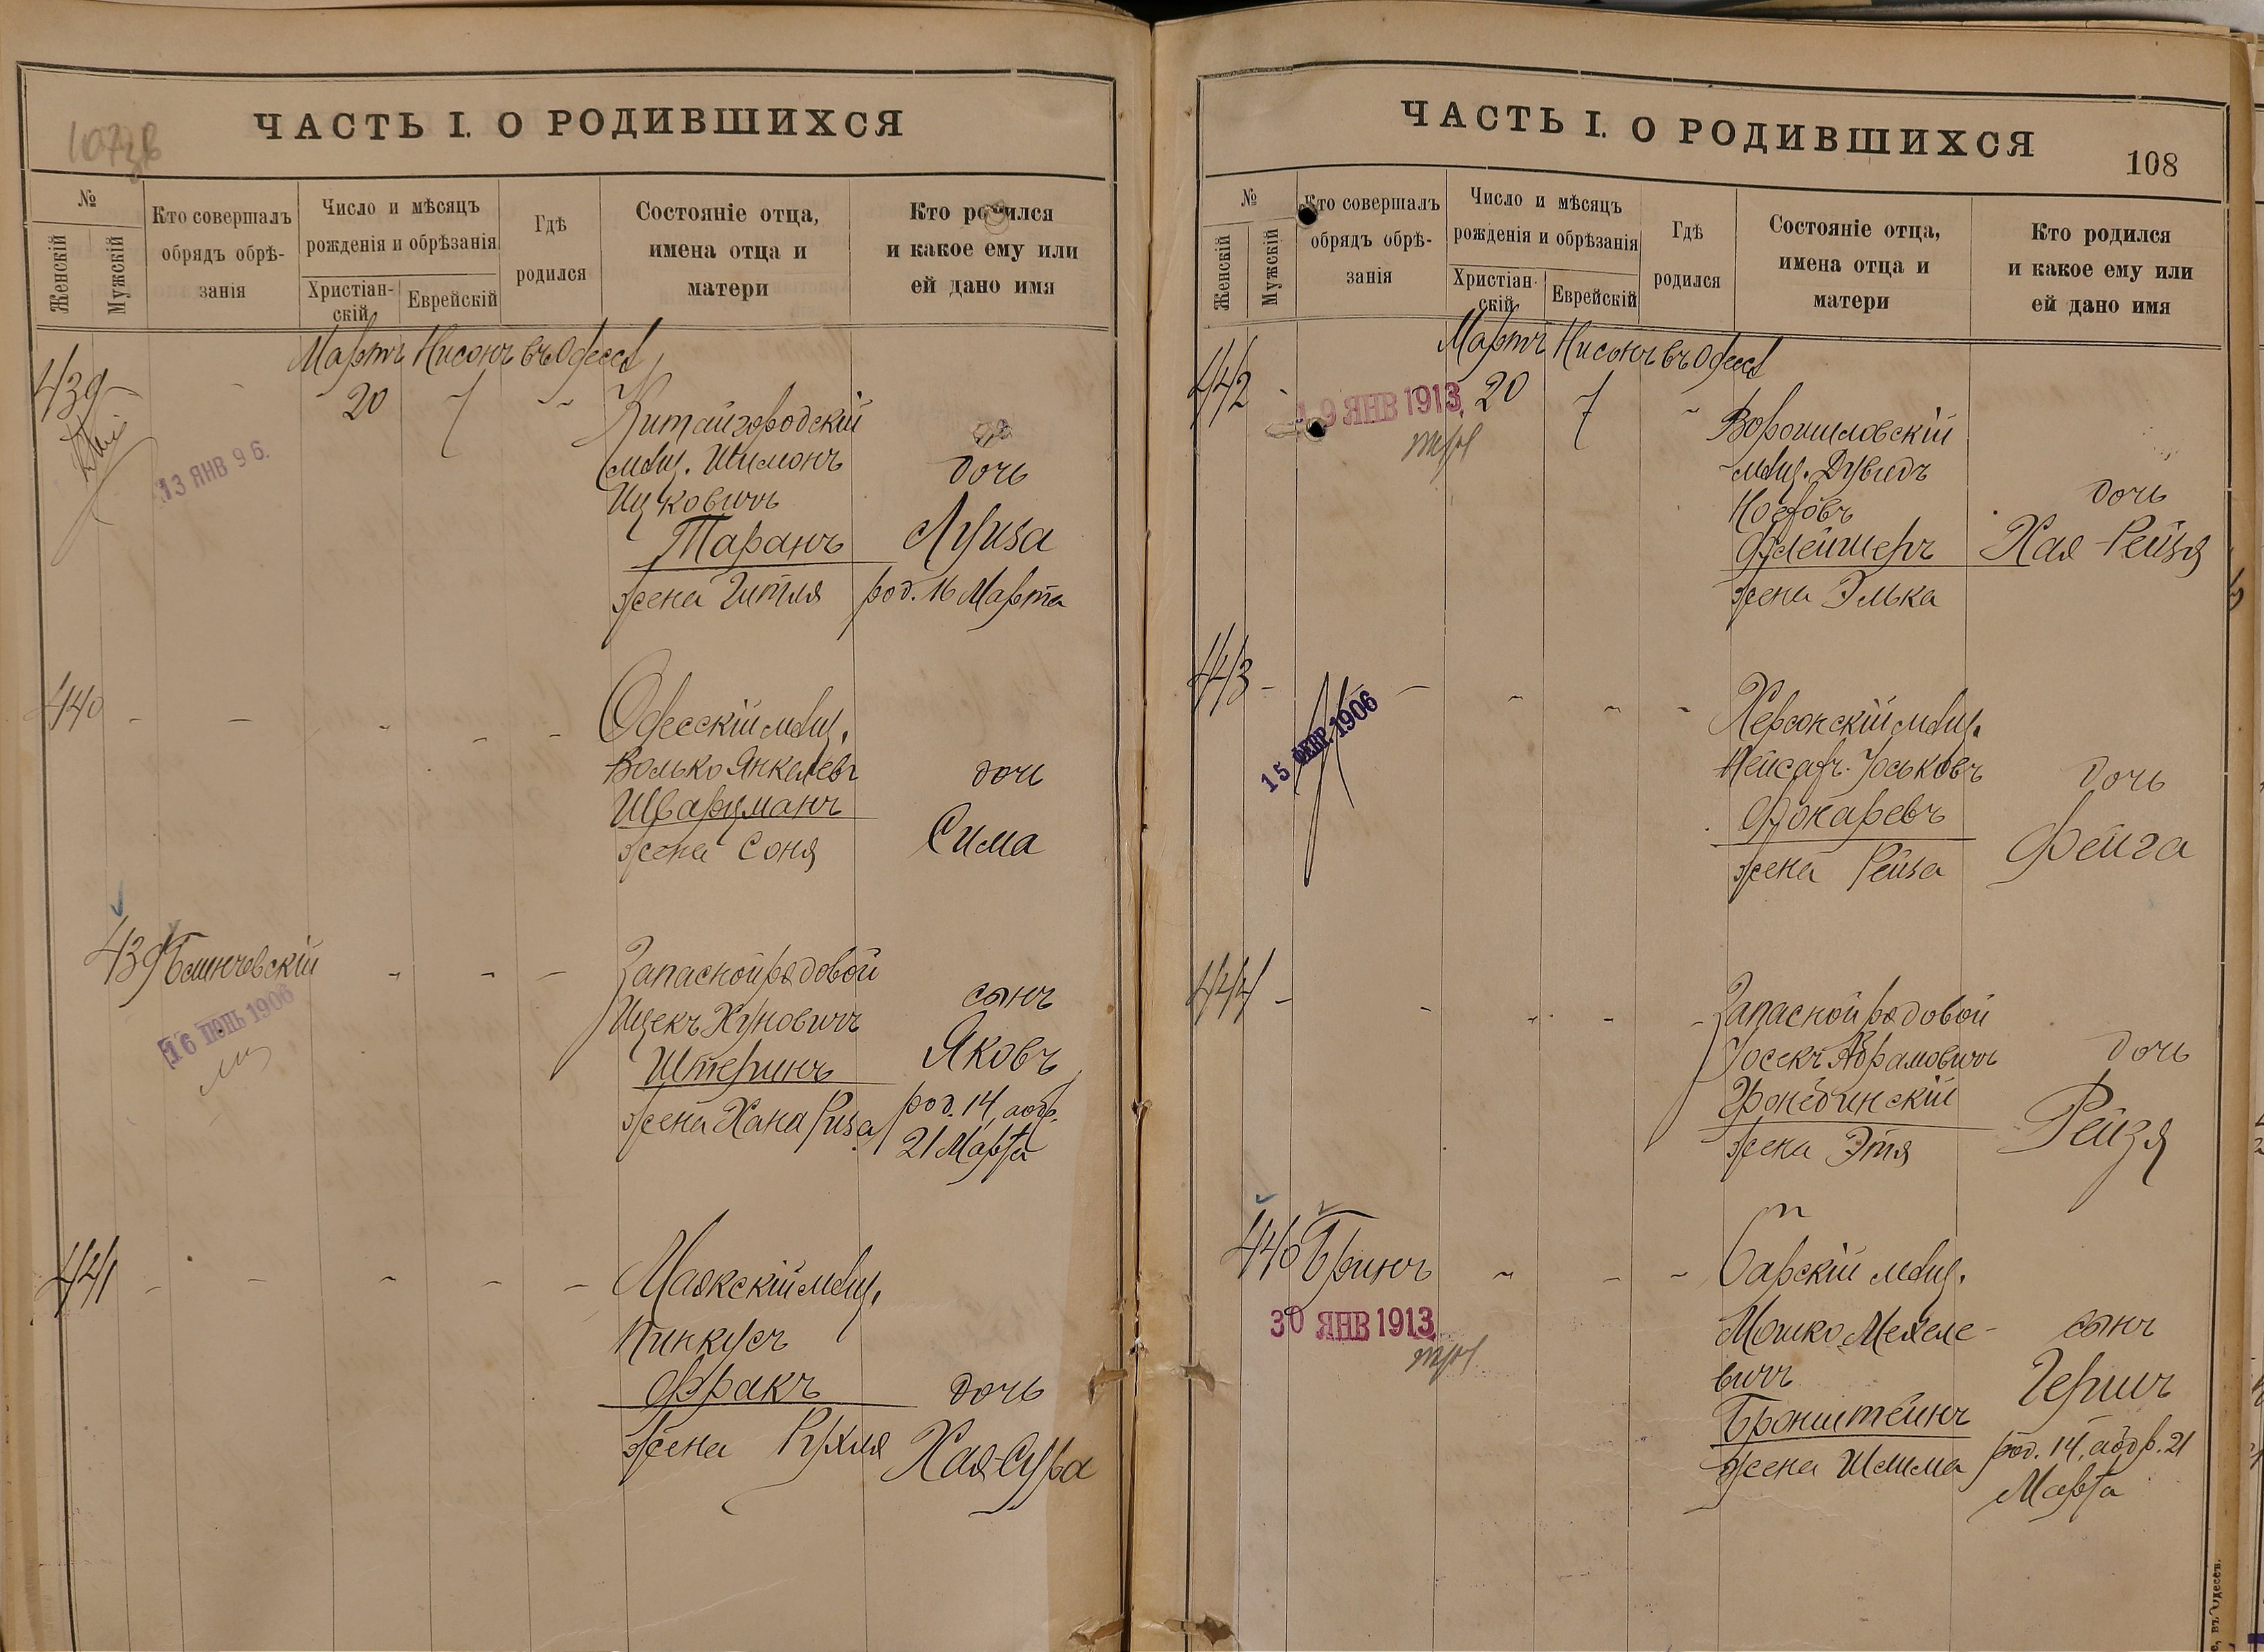 107зв
ЧАСТЬ I. О РОДИВШИХСЯ
№
Женскій
Мужскій
Кто совершалъ
обрядъ обрѣ-
занія
Число и мѣсяцъ
рожденія и обрѣзанія
Христіан-
скій
Еврейскій
Гдѣ
родился
Состояніе отца,
имена отца и
матери
Кто родился
и какое ему или
ей дано имя
Мартъ Нисонъ въ Одессѣ
439 - - 20 7 -
13 ЯНВ 96.
Китайгородскій
мѣщ. Шимонъ
Ицковичъ
Таранъ
жена Гитля
дочь
Луиза
род. 16 Марта
440 - - - - -
Одесскій мѣщ.
Волько Янкелевъ
Шварцманъ
жена Соня
дочь
Сима
439 Блинчевскій - - -
16 ІЮНЬ 1906
Запасной рядовой
Ицекъ Хуновичъ
Штеринъ
жена Хана Риза
сынъ
Яковъ
род. 14, аобр.
21 Марта
441 - - - - -
Маякскій мѣщ.
Пинкусъ
Фракъ
жена Рухля
дочь
Хая-Сура
ЧАСТЬ I. О РОДИВШИХСЯ
108
№
Женскій
Мужскій
Кто совершалъ
обрядъ обрѣ-
занія
Число и мѣсяцъ
рожденія и обрѣзанія
Христіан-
скій
Еврейскій
Гдѣ
родился
Состояніе отца,
имена отца и
матери
Кто родился
и какое ему или
ей дано имя
Мартъ Нисонъ въ Одессѣ
442 - 20 7 -
9 ЯНВ 1913
Ворошиловскій
мѣщ. Дувидъ
Флейшеръ
жена Элька
дочь
Хая-Рейзя
443 - - - - -
15 ФЕВР. 1906
Херсонскій мѣщ.
Іоськовъ
Фокаревъ
жена Рейза
дочь
Фейга
444 - - - - -
Запасной рядовой
Іосекъ Абрамовичъ
жена Этя
дочь
Рейзя
440 Бринъ - - -
30 ЯНВ 1913
Барскій мѣщ.
Мошко Мехеле-
вичъ
Бронштейнъ
жена Шлима
сынъ
Гершъ
род. 14, аобр. 21
Марта
въ Одессѣ.